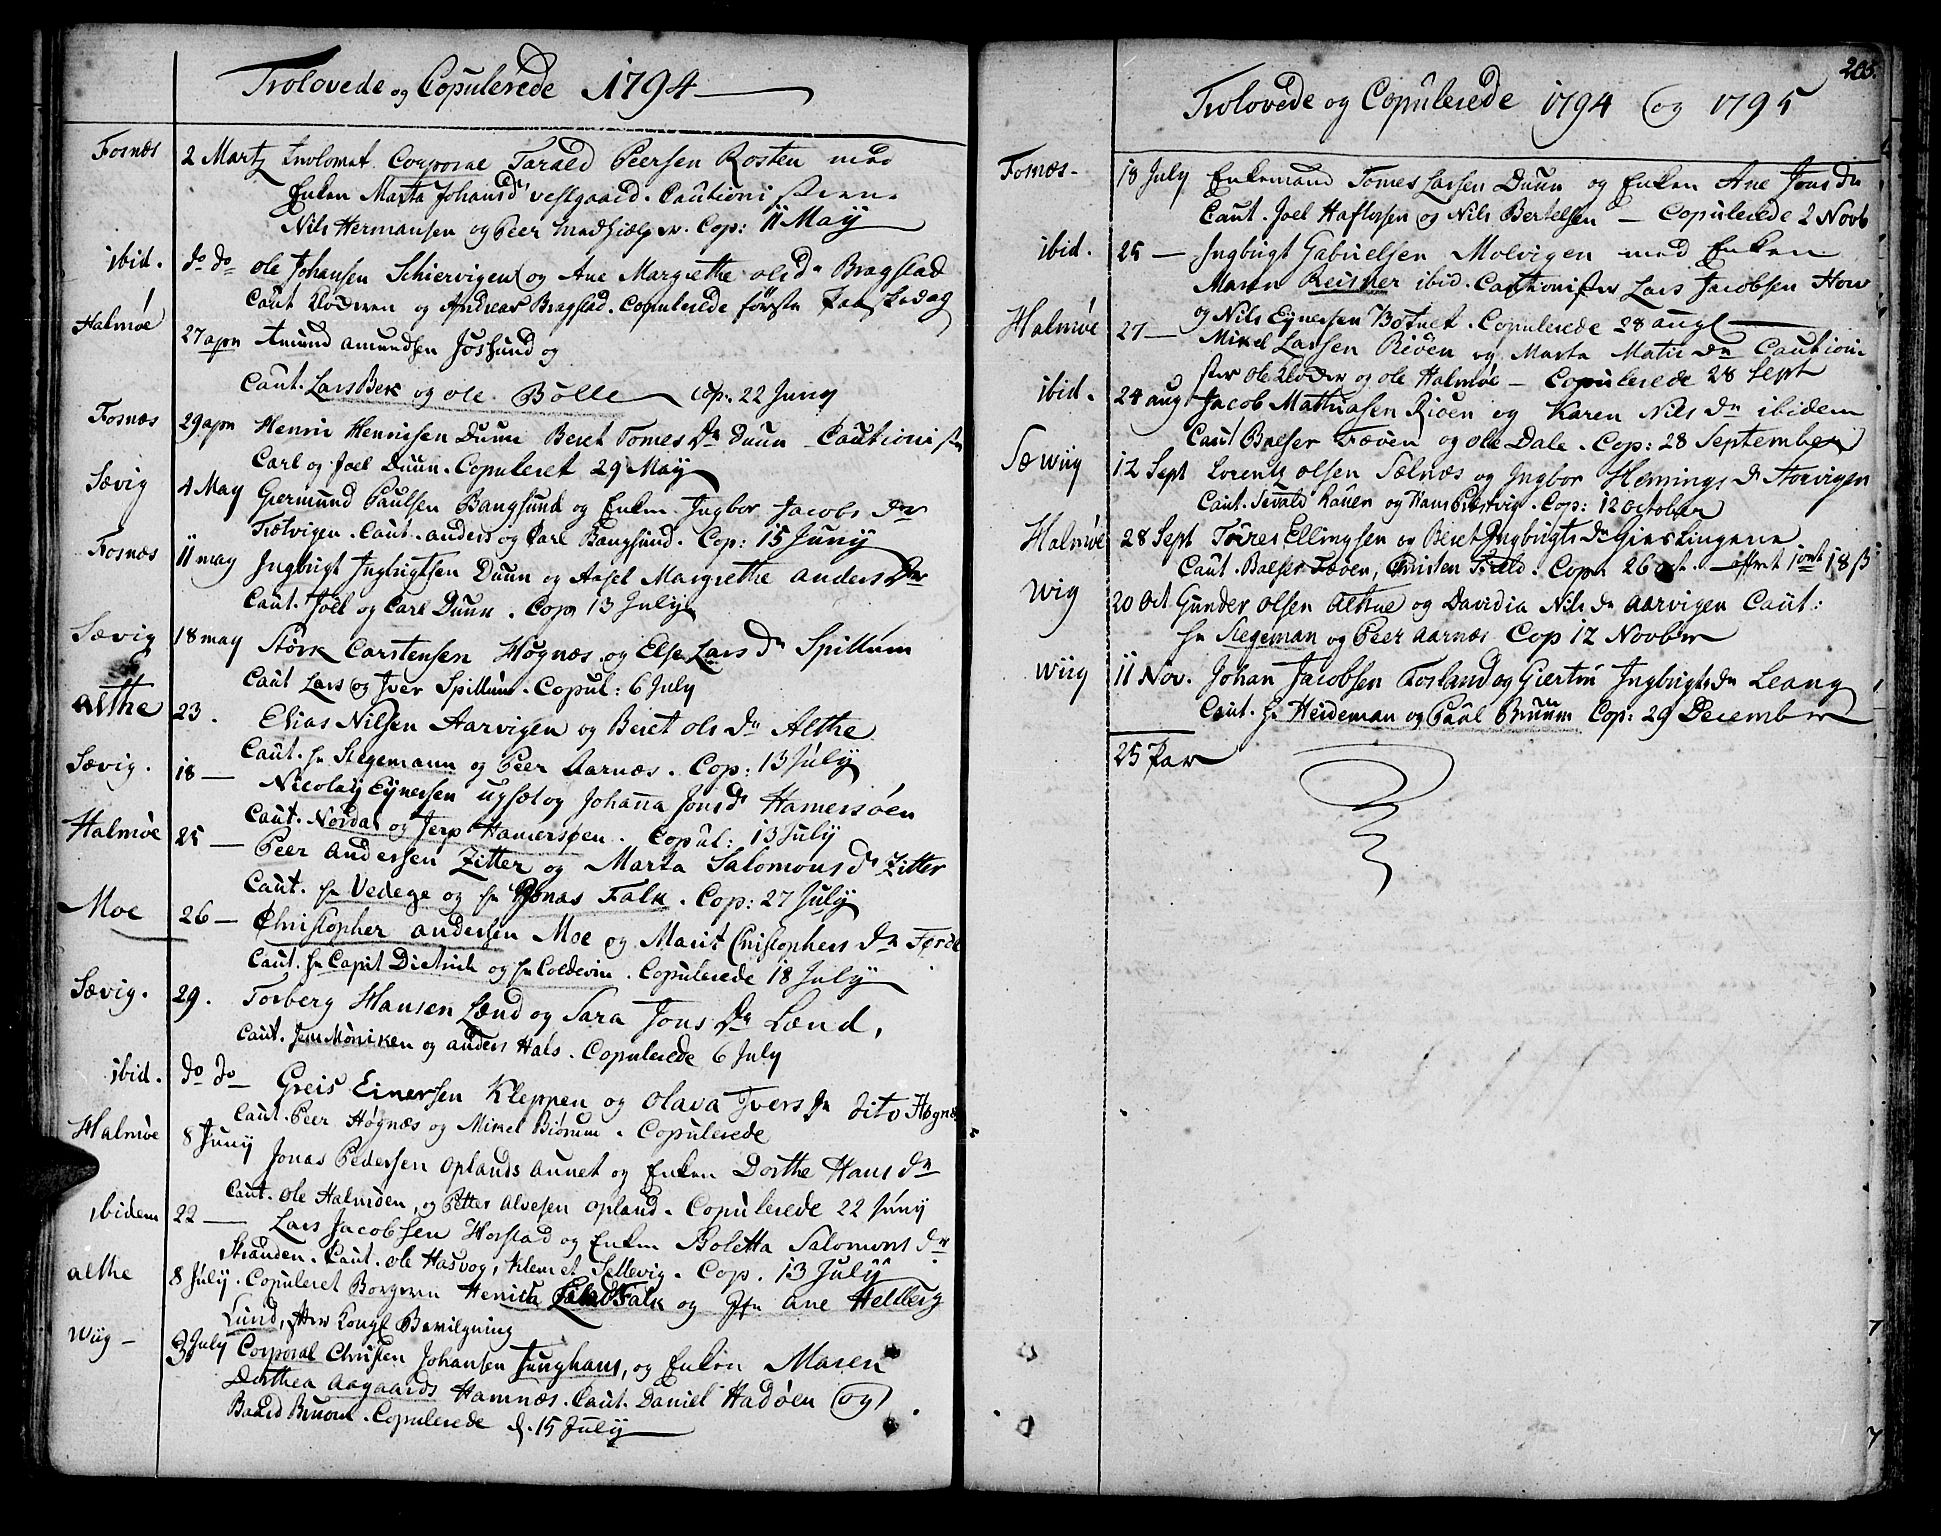 Trolovede og Copulerede 1794
Fosnæs 2 Martz Trolovet Corporal Tarald Peersen Rosten med
Enken Marta Johansd Vestgaard. Cautioni
Nils Hermansen og Peer Cop: 11 May
ibid. do do Ole Johansen Schiervigen og Ane Margrethe Olsdr Bragstad
Caut Klokeren og Andreas Bragstad. Copulerede første
Halmöe 27 apr Amund Amundsen Jossund og
Caut. Lars Bek og Ole Bolle Cop. 22 Juny
Fosnæs 29 apr Henric Henricsen Duun Beret Tomes Dr Duun Cautionister
Carl og Joel Duun. Copuleret 29 May
Sævig 4 May Giermund Paulsen Bangsund og Enken Ingbor Jacobs dr
Tøtvigen. Caut. anders og Carl Bangsund. Cop: 15 Juny
Fosnæs 11 may Ingbrigt Ingbrigtsen Duun og Aasel Margrethe Anders Dr
Caut. Joel og Carl Duun. Cop 13 July
Sævig 18 may Størk Carstensen Høgnæs og Else Lars Dr Spillum
Caut Lars og Iver Spillum. Copul: 6 July
Althe 23. Elias Nilsen Aarvigen og Beret Ols Dr Althe
Caut. hr Stegemann og Peer Aarnæs. Cop: 13 July
Sævig. 18 — Nicolay Eynersen og Johanna Jonsdr Hamersöen
Caut. Nordal og Jerp Hamersøen. Copul: 13 July
Halmöe 25 — Peer Andersen Zitter og Marta Salomons dr Zitter
Caut. hr Vedege og hr Jonas Falk. Cop: 27 July
Moe 26 — Christopher Andersen Moe og Marit Christophers Dr
Caut. hr Capit Dietrich og hr Coldevin. Copulerede 18 July
Sævig. 29. Torberg Hansen Lænd og Sara Jons Dr Lænd,
Caut. Möniken og anders Hals. Copulerede 6 July
ibid. do do Greis Einersen Kleppen og Olava Ivers dr dito Høgnæs
Caut. Peer Høgnæs og Mikel Biörum. Copulerede
Halmöe 8 Juny Jonas Pedersen Oplands aunet og Enken Dorthe Hans dr
Caut. Ole Halmöen, og Petter Alvesen Opland. Copulerede 22 Juny
ibidem 22 — Lars Jacobsen Horstad og Enken Boletta Salomons dr
Stranden. Caut. Ole Hasvog, Klemet Settevig. Cop. 13 July
althe 8 July. Copuleret Borgeren Falk og Ane Heltberg
Lund, efter Kongl Bevilgning
Wiig — 3 July Corporal Christen Johansen Junghans, og Enken Maren
Dorthea Aagaards Hamnæs. Caut. Daniel Hadöen og
Baard Bruom. Copulerede d. 15 July
205.
Trolovede og Copulerede 1794 og 1795
Fosnæs — 18 July Enkemand Tomes Larsen Duun og Enken Ane Jons Dr
Caut. Joel Haftorsen og Nils Bertelsen — Copulerede 2 Novb
ibid. 25 — Ingbrigt Gabrielsen Molvigen med Enken
Maren Reisner ibid. Cautionister Lars Jacobsen How
og Nils Eynersen Botnet. Copulerede 28 aug
Halmöe 27 — Mikel Larsen Riöen og Marta Matis dr Caution
ster Ole Kloder og Ole Halmöe — Copulerede 28 Sept
ibid. 24 aug Jacob Mathiasen Riöen og Karen Nils dr ibidem
Caut Balser Tæven og Ole Dale. Cop: 28 September
Sæwiig 12 Sept Lorentz Olsen Sælnæs og Ingbor Hemings dr Storvigen
Caut. Kauen og Hans Prestvig. Cop: 12 October
Halmöe 28 Sept Torres Ellingsen og Beret Ingbrigts Dr Gieslingene
Caut. Balser Tæven, Christen Cop 26 oct.
Wig 20 Oct Gunder Olsen Althe og Davidia Nils dr Aarvigen Caut:
hr Stegeman og Peer Aarnæs Cop 12 Novber
Wiig 11 Nov. Johan Jacobsen Fosland og Giertru Ingbrigts dr Leang
Caut. hr Heideman og Paul Bruum Cop: 29 December
25 Par